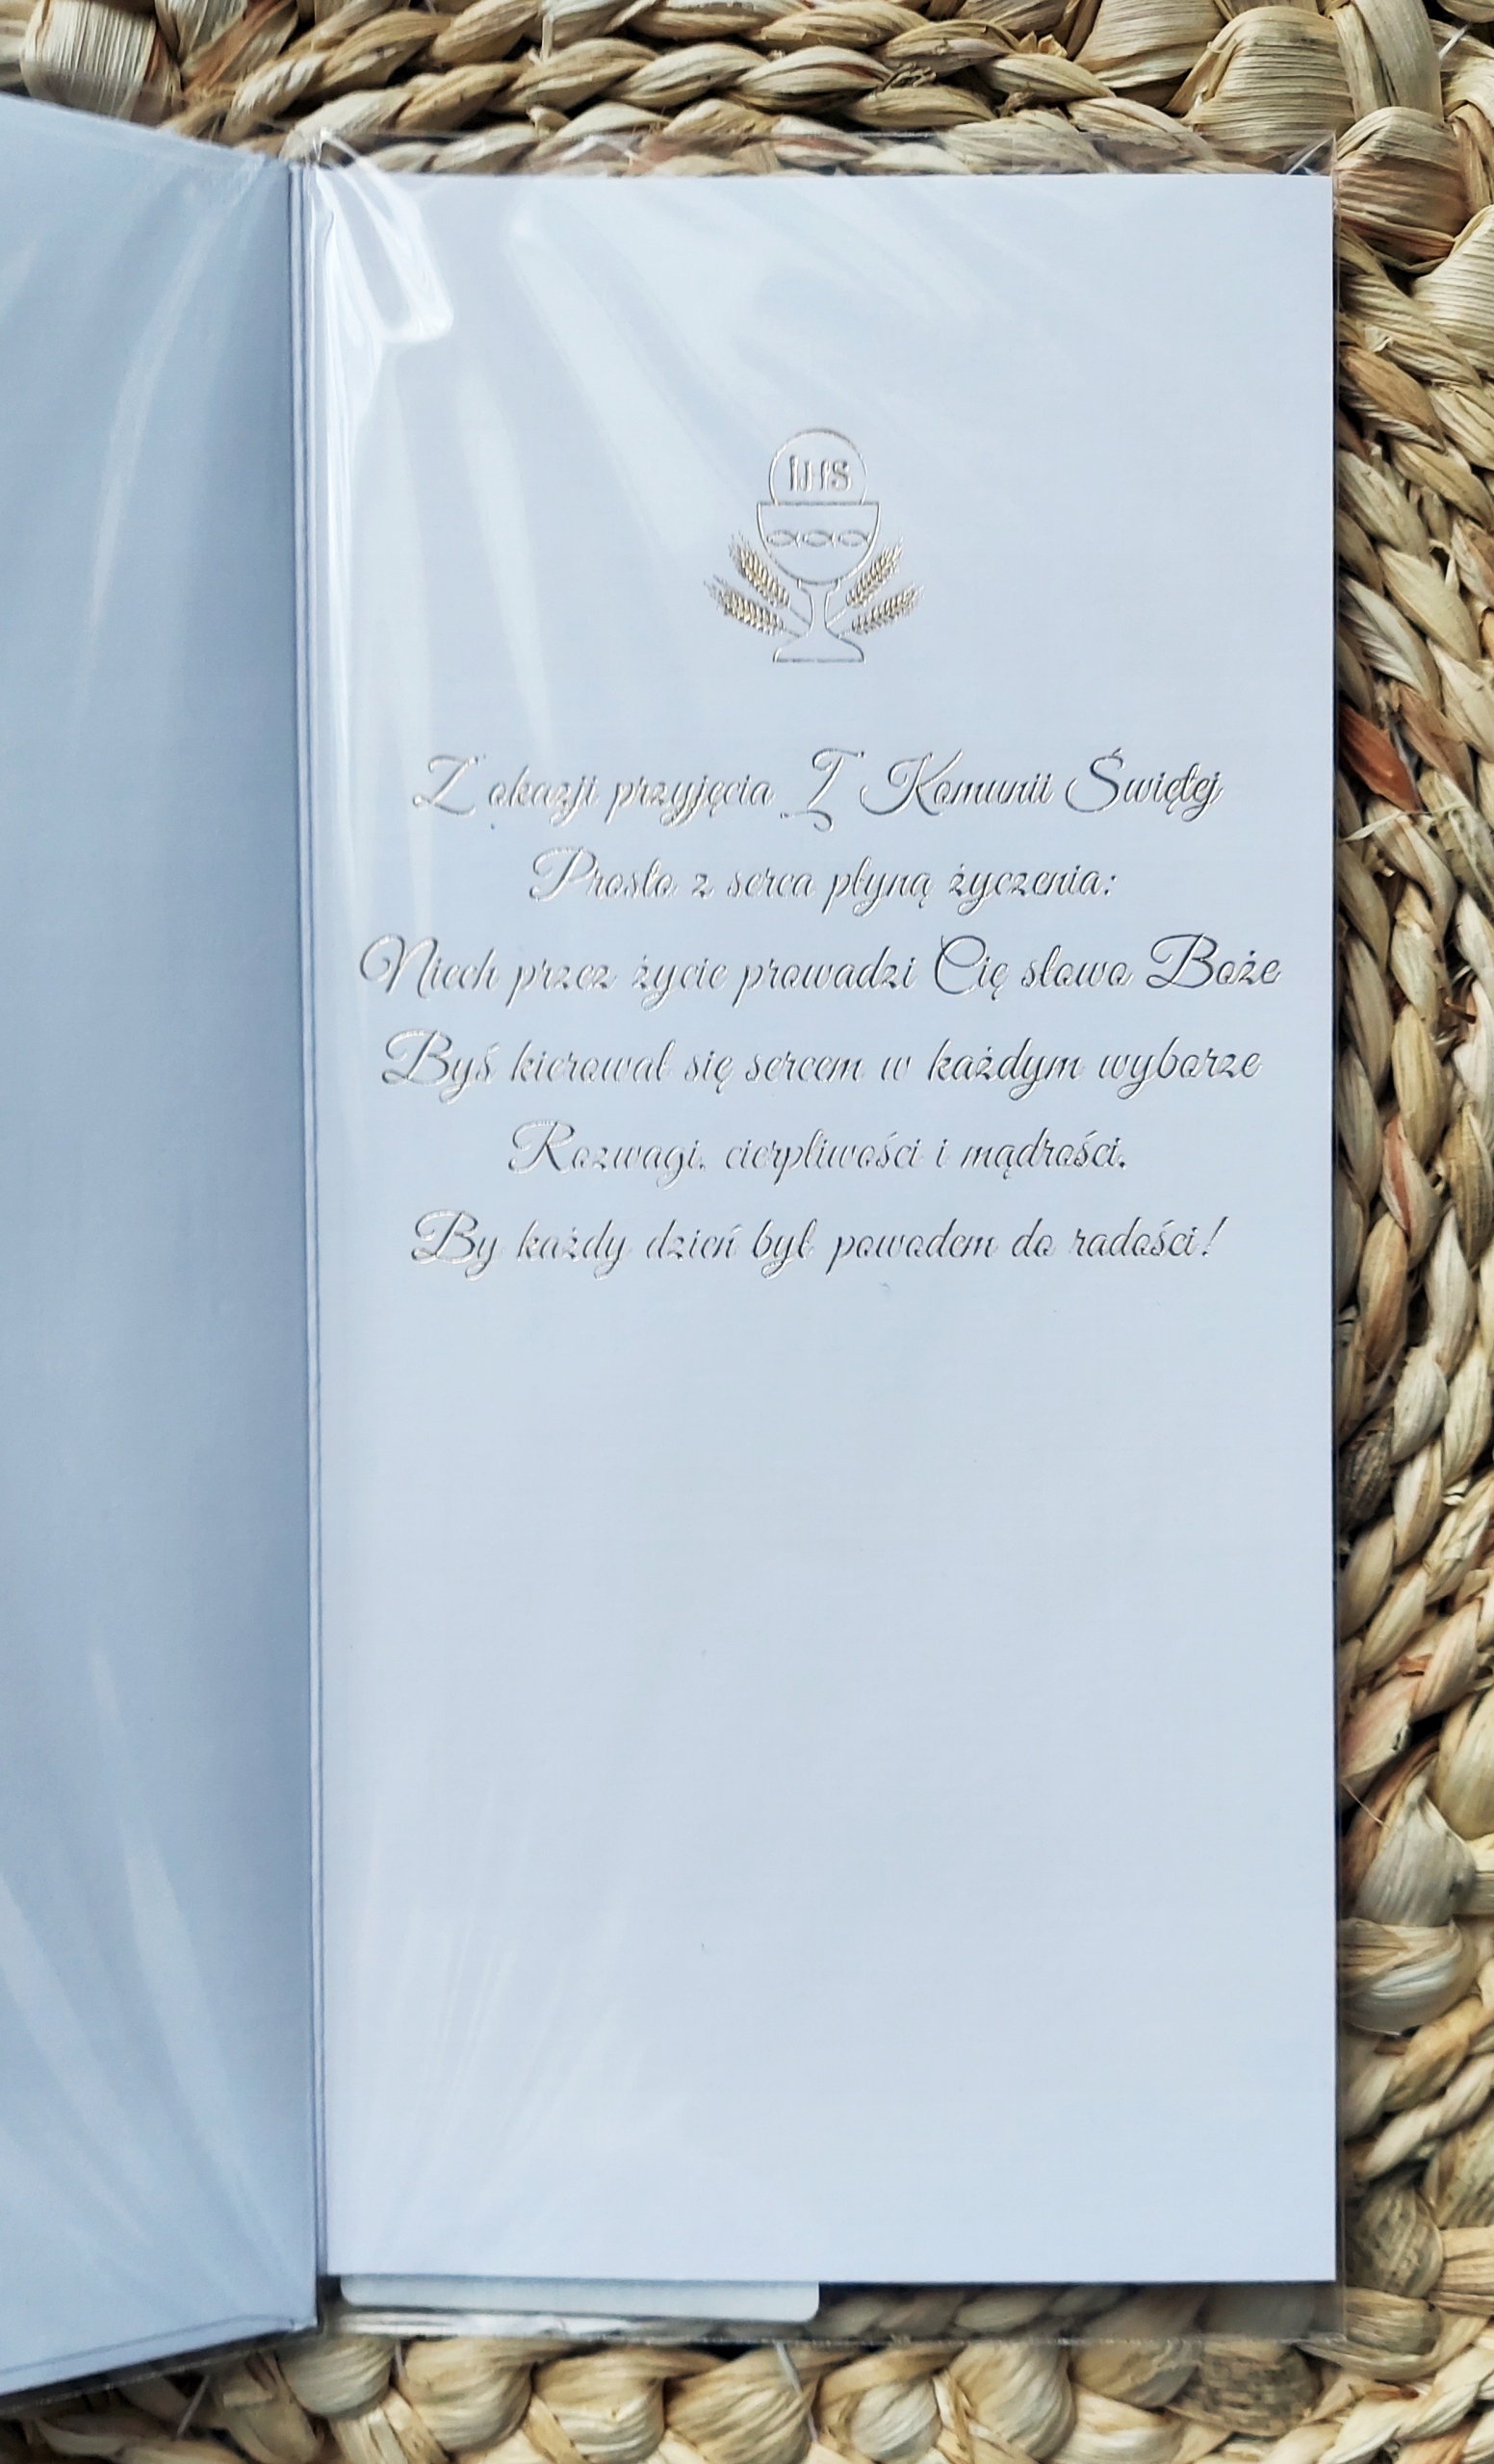 IHS
Z okazji przyjęcia I Komunii Świętej
Prosto z serca płyną życzenia:
Niech przez życie prowadzi Cię słowo Boże
Byś kierował się sercem w każdym wyborze
Rozwagi, cierpliwości i mądrości.
By każdy dzień był powodem do radości!